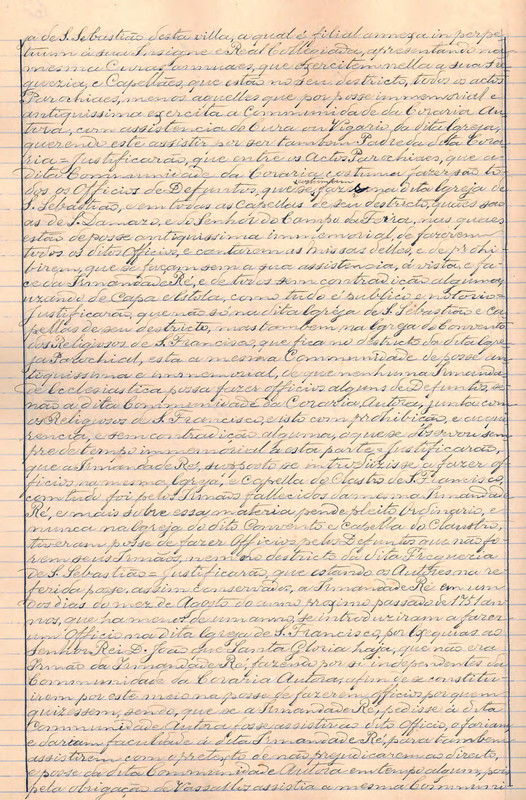 ja de S. Sebastião desta villa, a qual é filial annexa in perpe-
tuum à sua Insigne e Real Collegiada, apresentando na
mesma Curas annuaes, que exercitem nella a sua Fre
guezia, e Capellães, que estão no seu destricto, todos os actos
Parochiaes, menos aquelles que por posse immemorial e
antiquissima exercita a Communidade da Coraria Au-
tora, com assistencia do Cura ou Vigario da dita Igreja,
querendo este assistir por ser tambem Padre da dita Cora
ria = Justificarão, que entre os Actos Parochiaes, que a
dita Communidade da Coraria costuma fazer são to-
dos os Officios de Defuntos, que se fazem na dita Igreja de
S. Sebastião, e em todas as Capellas de seu destricto, quaes são
as de S. Damazo, e do Senhor do Campo da Feira, nas quaes
estão de posse antiquissima immemorial, de fazerem
todos os ditos Officios, e cantarem as Missas delles, e de prohi-
birem, que se façam sem a sua assistencia, á vista, e fa-
ce da Irmandade Ré, e de todos sem contradição alguma,
uzando de Capa e Estola, como tudo é publico e notorio =
Justificarão, que não só na dita Igreja de S. Sebastião e ca-
pellas de seu destricto, mas tambem na Igreja do Convento
dos Religiosos de S. Francisco, que fica no destricto da dita Igre-
ja Parochial, está a mesma Communidade de posse an-
tiquissima e immemorial, de que nenhuma Irmanda-
de Ecclesiastica possa fazer officios alguns de Defuntos, se-
não a dita Communidade da Coraria Autora, junta com
os Religiosos de S. Francisco, e isto com prohibição, e acqui
rencia, e sem contradição alguma, o que se observou sem
pre de tempo immemorial a esta parte = Justificarão,
que a Irmandade Ré, supposto se introduzisse a fazer of-
ficios na mesma Igreja, e Capella do Claustro de S. Francisco,
comtudo foi pelos Irmãos fallecidos da mesma Irmandade
Ré, e mais sobre essa materia pende pleito Ordinario, e
nunca na Igreja do dito Convento e capella do Claustro,
tiveram posse de fazer Officios pelos Defuntos que não fo-
rem seus Irmãos, nem no destricto da dita Freguezia
de S. Sebastião = Justificarão, que estando os Autores na re-
ferida posse, assim conservados, a Irmandade Ré em um
dos dias do mez de Agosto do anno proximo passado de 1751 an-
nos, que ha menos de um anno, se introduziram a fazer
um Officio na dita Igreja de S. Francisco, por Exequias ao
Senhor Rei D. João que Santa Gloria haja, que não era
Irmão da Irmandade Ré, fazendo por si independentes da
Communidade da Coraria Autora, a fim de se constitu-
irem por este meio na posse de fazerem officios por quem
quizessem, sendo, que se a Irmandade Ré, pedisse á dita
Communidade Autora fosse assistir ao dito Officio, o fariam,
e dariam faculdade á dita Irmandade Ré, para tambem
assistirem com o pretexto de não prejudicarem ao direito,
e posse da dita Communidade Autora em tempo algum, pois
pela obrigação de Vassallos assistia a mesma Communi